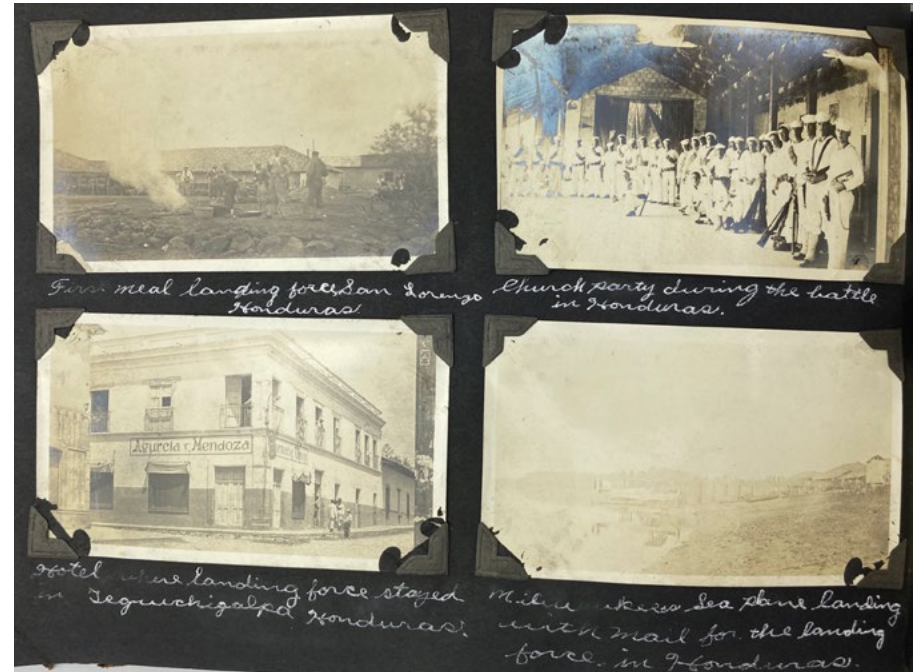 First meal landing force, San Lorenzo
Honduras
Church party during the battle
in Honduras.
Agurcia y Mendoza
Hotel where landing force stayed
in Teguuchigalpa Honduras.
Milwaukees Sea plane landing
with mail for the landing
force. in Honduras.